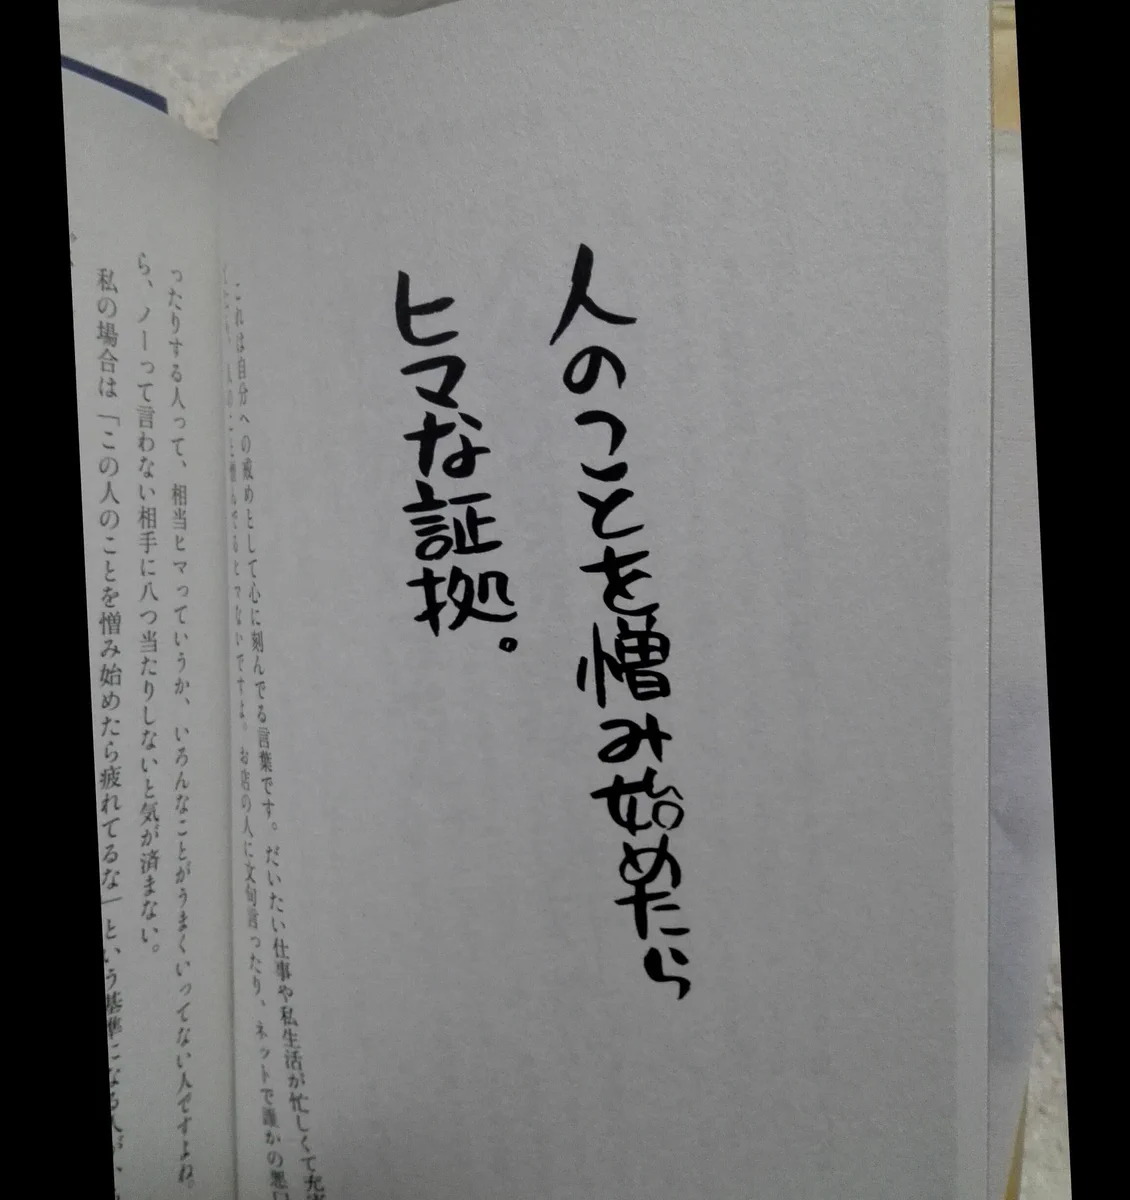 人のことを憎み始めたら
ヒマな証拠。
これは自分への戒めとして心に刻んでる言葉です。だいたい仕事や私生活が忙しくて充実
人のこと憎んでるヒマないですよ。お店の人に文句言ったり、ネットで誰かの悪口
ったりする人って、相当ヒマっていうか、いろんなことがうまくいってない人ですよね。
ら、ノーって言わない相手に八つ当たりしないと気が済まない。
私の場合は「この人のことを憎み始めたら疲れてるな」という基準になる人が、